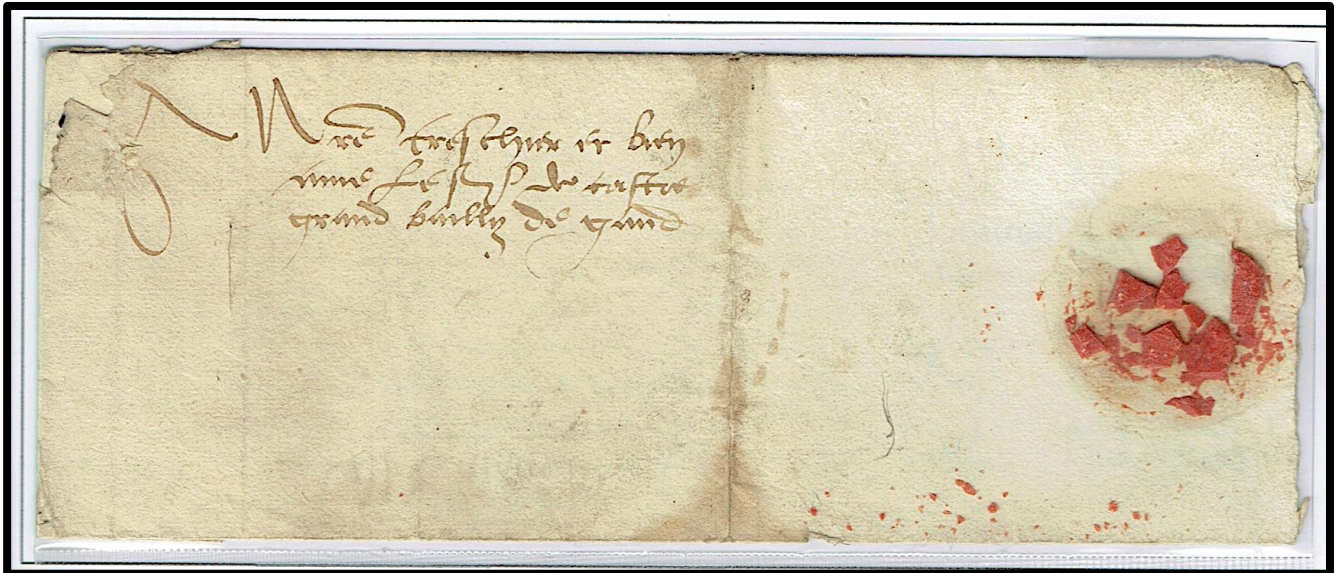 A Nre treschier et bien
ame le sr de castre
grand bailly de gand